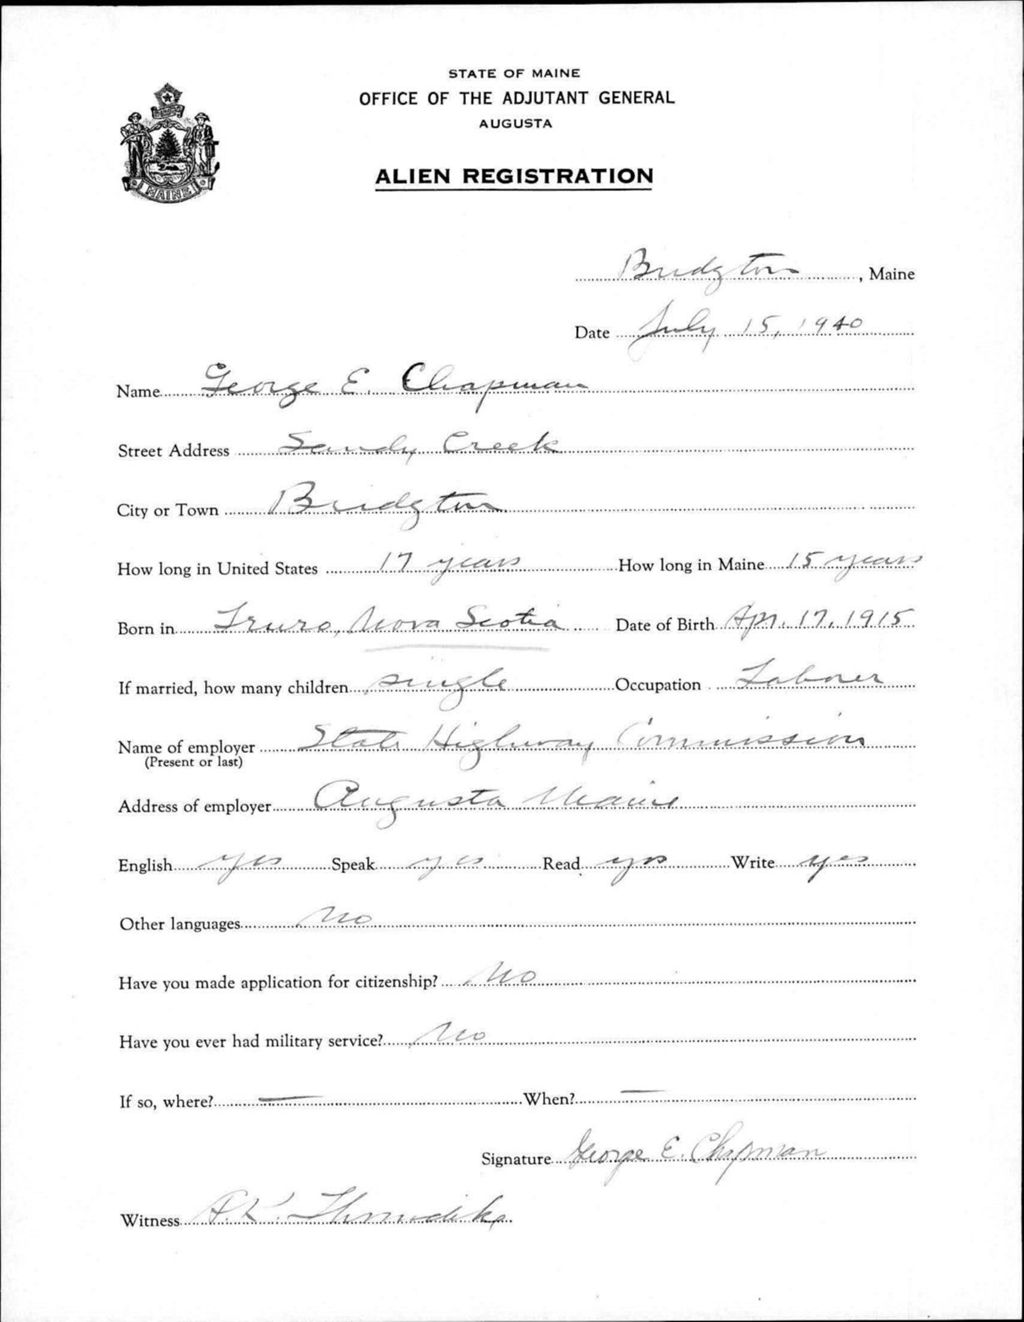 STATE OF MAINE
OFFICE OF THE ADJUTANT GENERAL
AUGUSTA
ALIEN REGISTRATION
MAINE
Bridgton, Maine
Date July 15, 1940
Name George E. Chapman
Street Address Sandy Creek
City or Town Bridgton
How long in United States 17 years How long in Maine 15 years
Born in Truro, Nova Scotia Date of Birth Apr. 17, 1915
If married, how many children single Occupation Laborer
Name of employer State Highway Commission
(Present or last)
Address of employer Augusta Maine
English yes Speak yes Read yes Write yes
Other languages No
Have you made application for citizenship? No
Have you ever had military service? No
If so, where? — When? —
Signature George E. Chapman
Witness